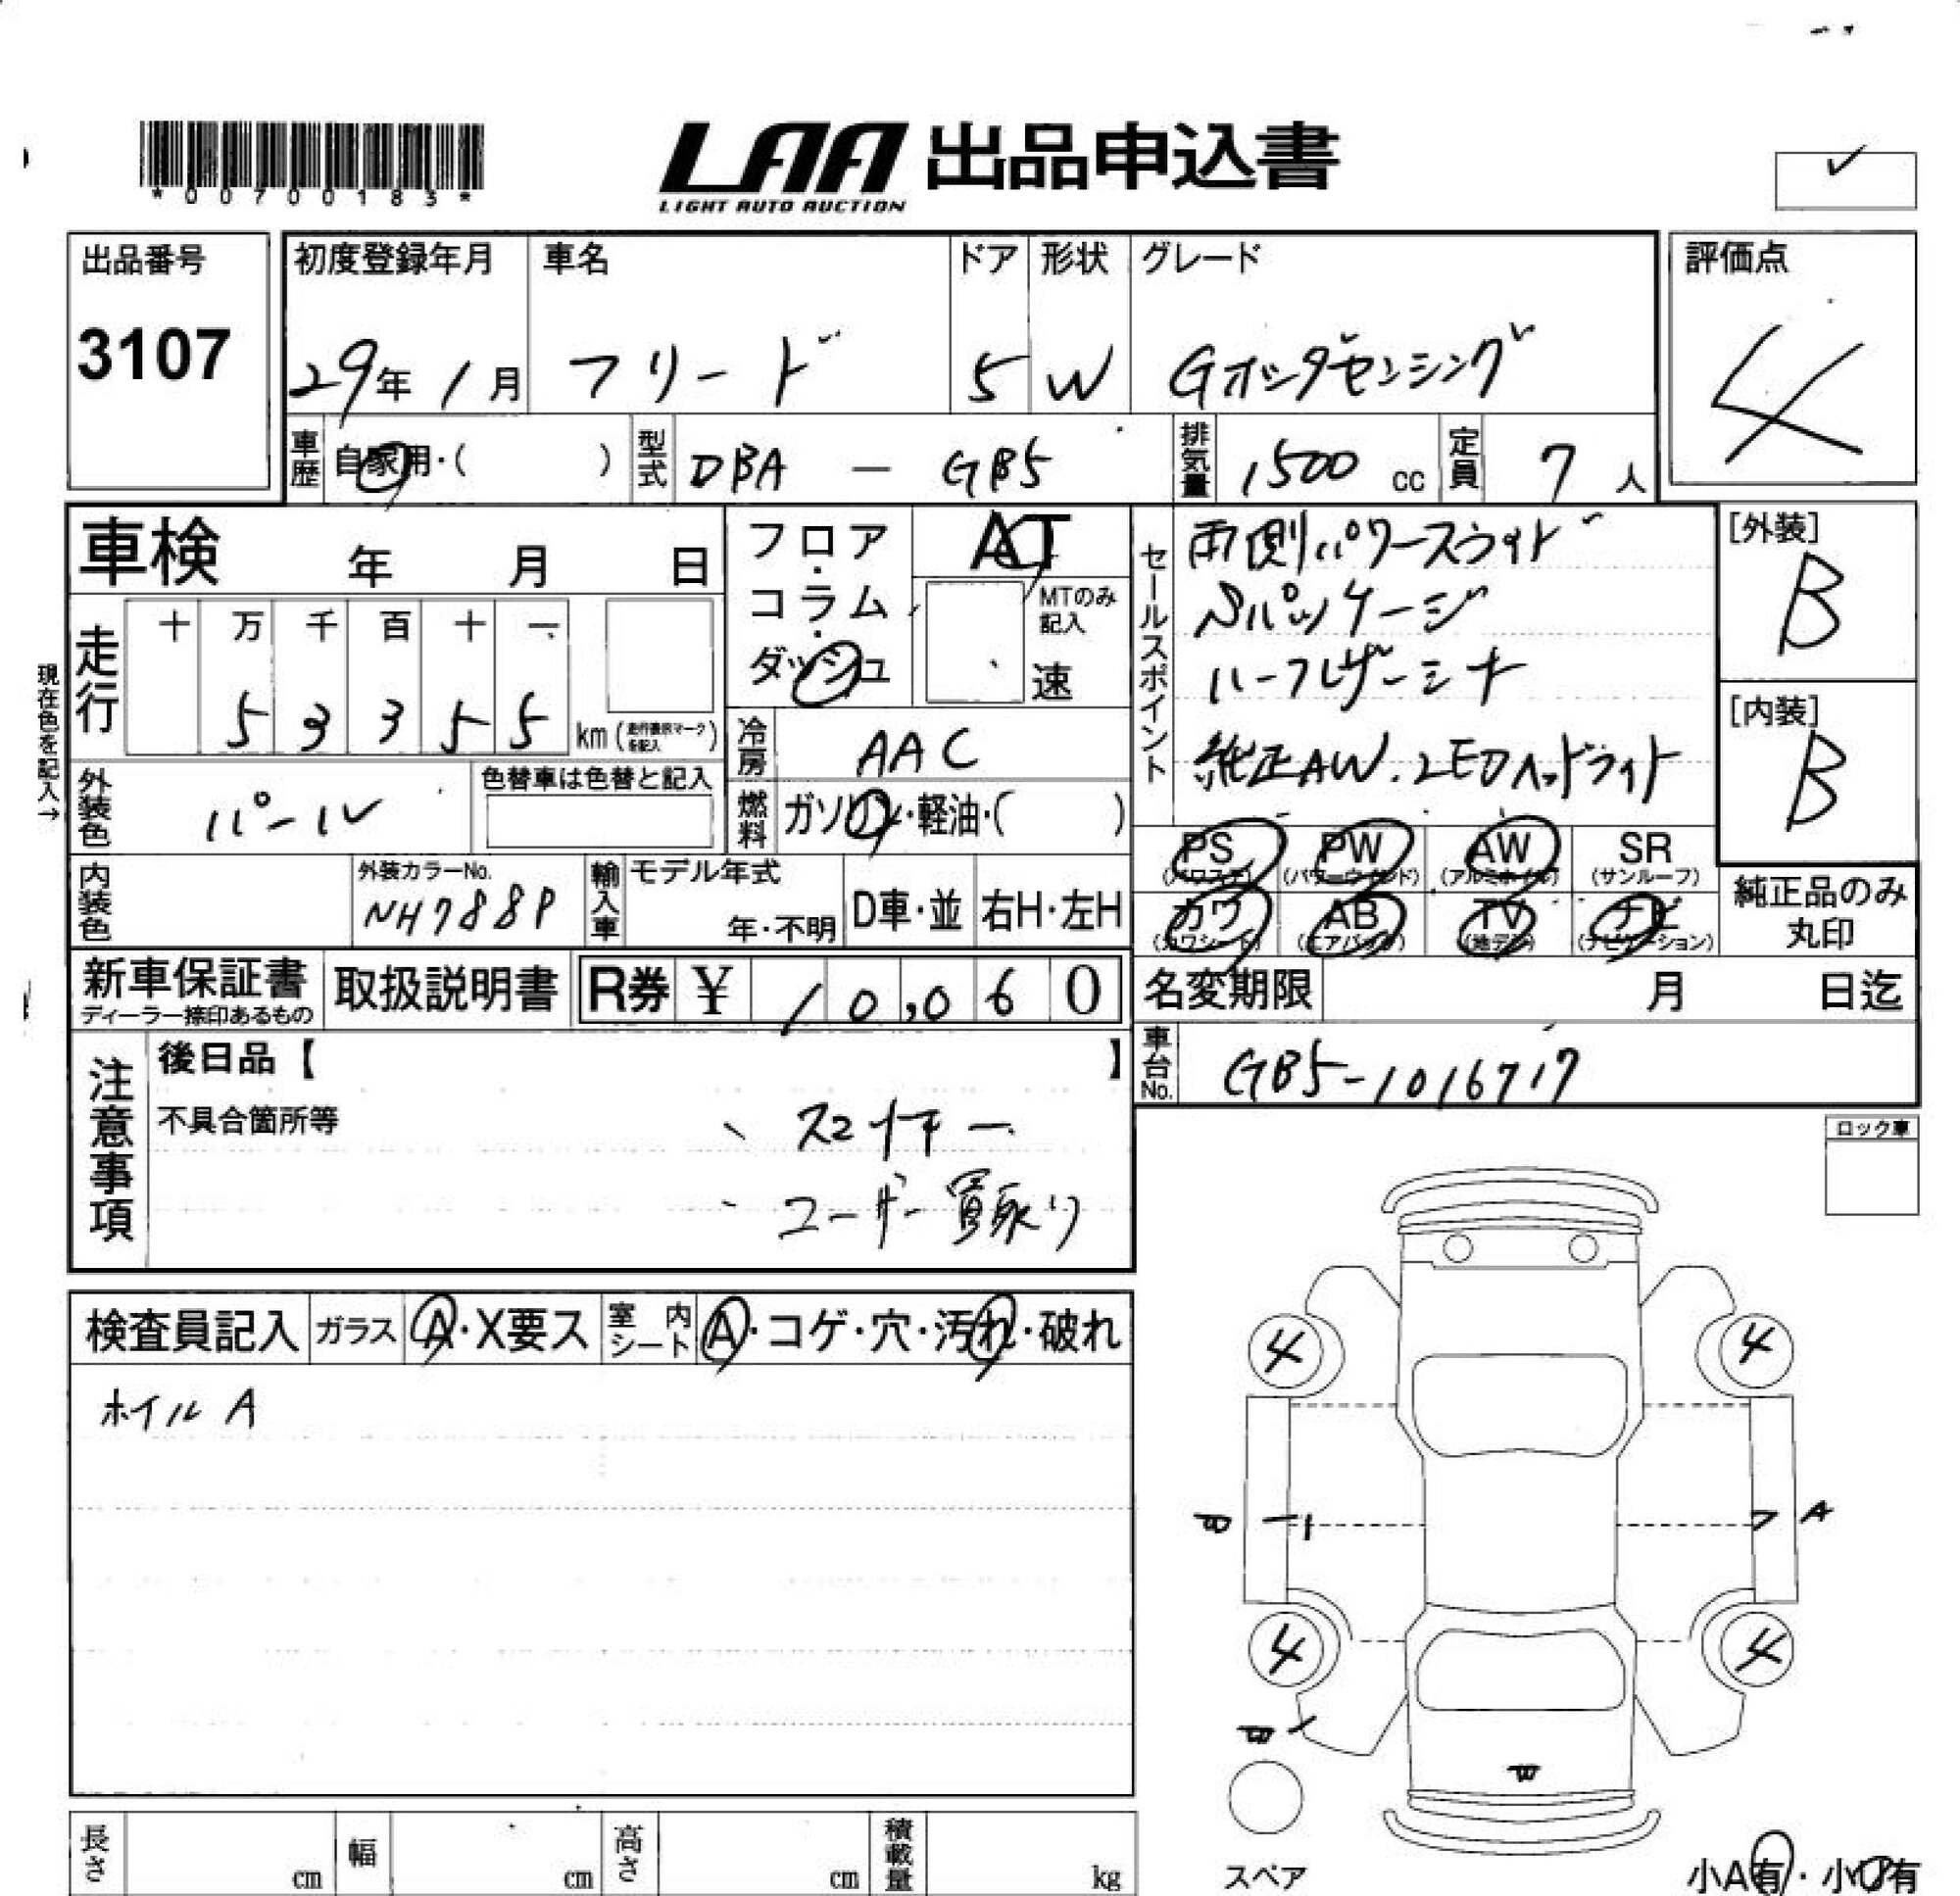 *00700183*
LAA 出品申込書
LIGHT AUTO AUCTION
出品番号
3107
初度登録年月
29年 1月
車名
フリード
ドア
5
形状
W
グレード
Gホンダセンシング
評価点
4
車歴
自家用・( )
型式
DBA - GB5
排気量
1500 cc
定員
7 人
車検 年 月 日
フロア・コラム・ダッシュ
AT
MTのみ記入
速
セールスポイント
両側パワースライド
Sパッケージ
ハーフレザーシート
純正AW.LEDヘッドライト
[外装]
B
[内装]
B
現在色を記入→
走行
十 万 千 百 十 一
5 3 3 5 5
km (走行書換マークを記入)
冷房
AAC
燃料
ガソリン・軽油・( )
外装色
パール
色替車は色替と記入
内装色
外装カラーNo.
NH788P
輸入車
モデル年式
年・不明
D車・並
右H・左H
PS
(パワステ)
PW
(パワーウィンド)
AW
(アルミホイル)
SR
(サンルーフ)
カワ
(カワシート)
AB
(エアバック)
TV
(地デジ)
ナビ
(ナビゲーション)
純正品のみ
丸印
新車保証書
ディーラー捺印あるもの
取扱説明書
R券 ¥ 10,060
名変期限 月 日迄
車台No.
GB5-1016717
注意事項
後日品【 】
不具合箇所等
スマートキー
ユーザー買取り
ロック車
検査員記入
ガラス
A・X要ス
室内シート
A・コゲ・穴・汚れ・破れ
ホイル A
4
4
A
4
4
W
スペア
小A有・小U有
長さ cm
幅 cm
高さ cm
積載量 kg